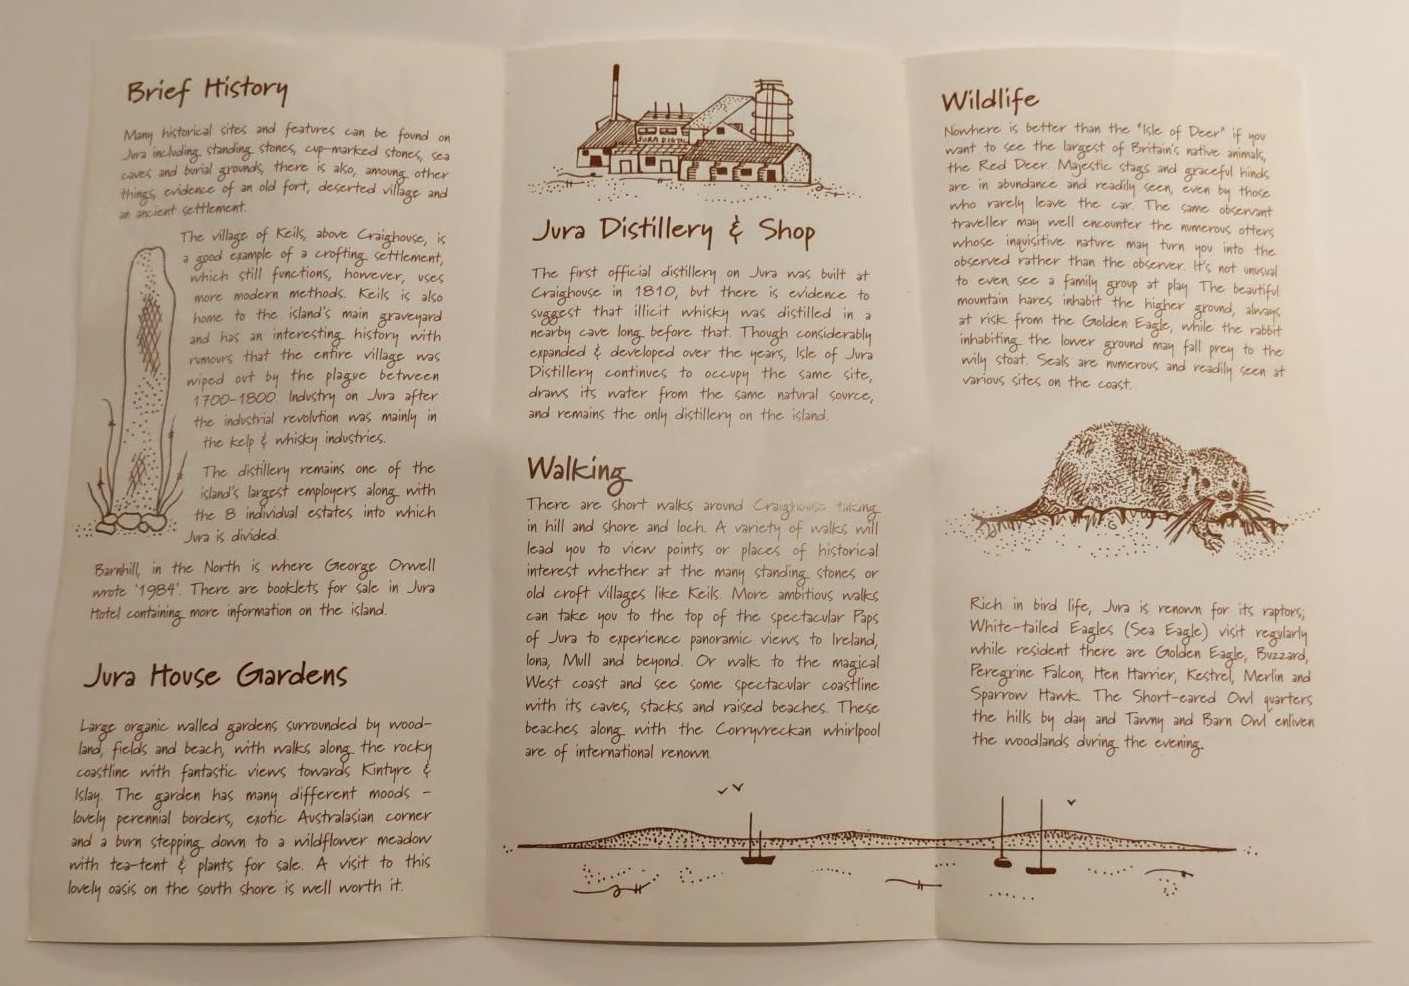 Brief History
Many historical sites and features can be found on
Jura including standing stones, cup-marked stones, sea
caves and burial grounds, there is also, amoung other
things, evidence of an old fort, deserted village and
an ancient settlement.
The village of Keils, above Craighouse, is
a good example of a crofting settlement,
which still functions, however, uses
more modern methods. Keils is also
home to the island's main graveyard
and has an interesting history with
rumours that the entire village was
wiped out by the plague between
1700-1800. Industry on Jura after
the industrial revolution was mainly in
the kelp & whisky industries.
The distillery remains one of the
island's largest employers along with
the 8 individual estates into which
Jura is divided.
Barnhill, in the North is where George Orwell
wrote '1984'. There are booklets for sale in Jura
Hotel containing more information on the island.
Jura House Gardens
Large organic walled gardens surrounded by wood-
land, fields and beach, with walks along the rocky
coastline with fantastic views towards Kintyre &
Islay. The garden has many different moods -
lovely perennial borders, exotic Australasian corner
and a burn stepping down to a wildflower meadow
with tea-tent & plants for sale. A visit to this
lovely oasis on the south shore is well worth it.
JURA DISTIL
Jura Distillery & Shop
The first official distillery on Jura was built at
Craighouse in 1810, but there is evidence to
suggest that illicit whisky was distilled in a
nearby cave long before that. Though considerably
expanded & developed over the years, Isle of Jura
Distillery continues to occupy the same site,
draws its water from the same natural source,
and remains the only distillery on the island.
Walking
There are short walks around Craighouse taking
in hill and shore and loch. A variety of walks will
lead you to view points or places of historical
interest whether at the many standing stones or
old croft villages like Keils. More ambitious walks
can take you to the top of the spectacular Paps
of Jura to experience panoramic views to Ireland,
Iona, Mull and beyond. Or walk to the magical
West coast and see some spectacular coastline
with its caves, stacks and raised beaches. These
beaches along with the Corryvreckan whirlpool
are of international renown.
Wildlife
Nowhere is better than the "Isle of Deer" if you
want to see the largest of Britain's native animals,
the Red Deer. Majestic stags and graceful hinds
are in abundance and readily seen, even by those
who rarely leave the car. The same observant
traveller may well encounter the numerous otters
whose inquisitive nature may turn you into the
observed rather than the observer. It's not unusual
to even see a family group at play. The beautiful
mountain hares inhabit the higher ground, always
at risk from the Golden Eagle, while the rabbit
inhabiting the lower ground may fall prey to the
wily stoat. Seals are numerous and readily seen at
various sites on the coast.
Rich in bird life, Jura is renown for its raptors;
White-tailed Eagles (Sea Eagle) visit regularly
while resident there are Golden Eagle, Buzzard,
Peregrine Falcon, Hen Harrier, Kestrel, Merlin and
Sparrow Hawk. The Short-eared Owl quarters
the hills by day and Tawny and Barn Owl enliven
the woodlands during the evening.